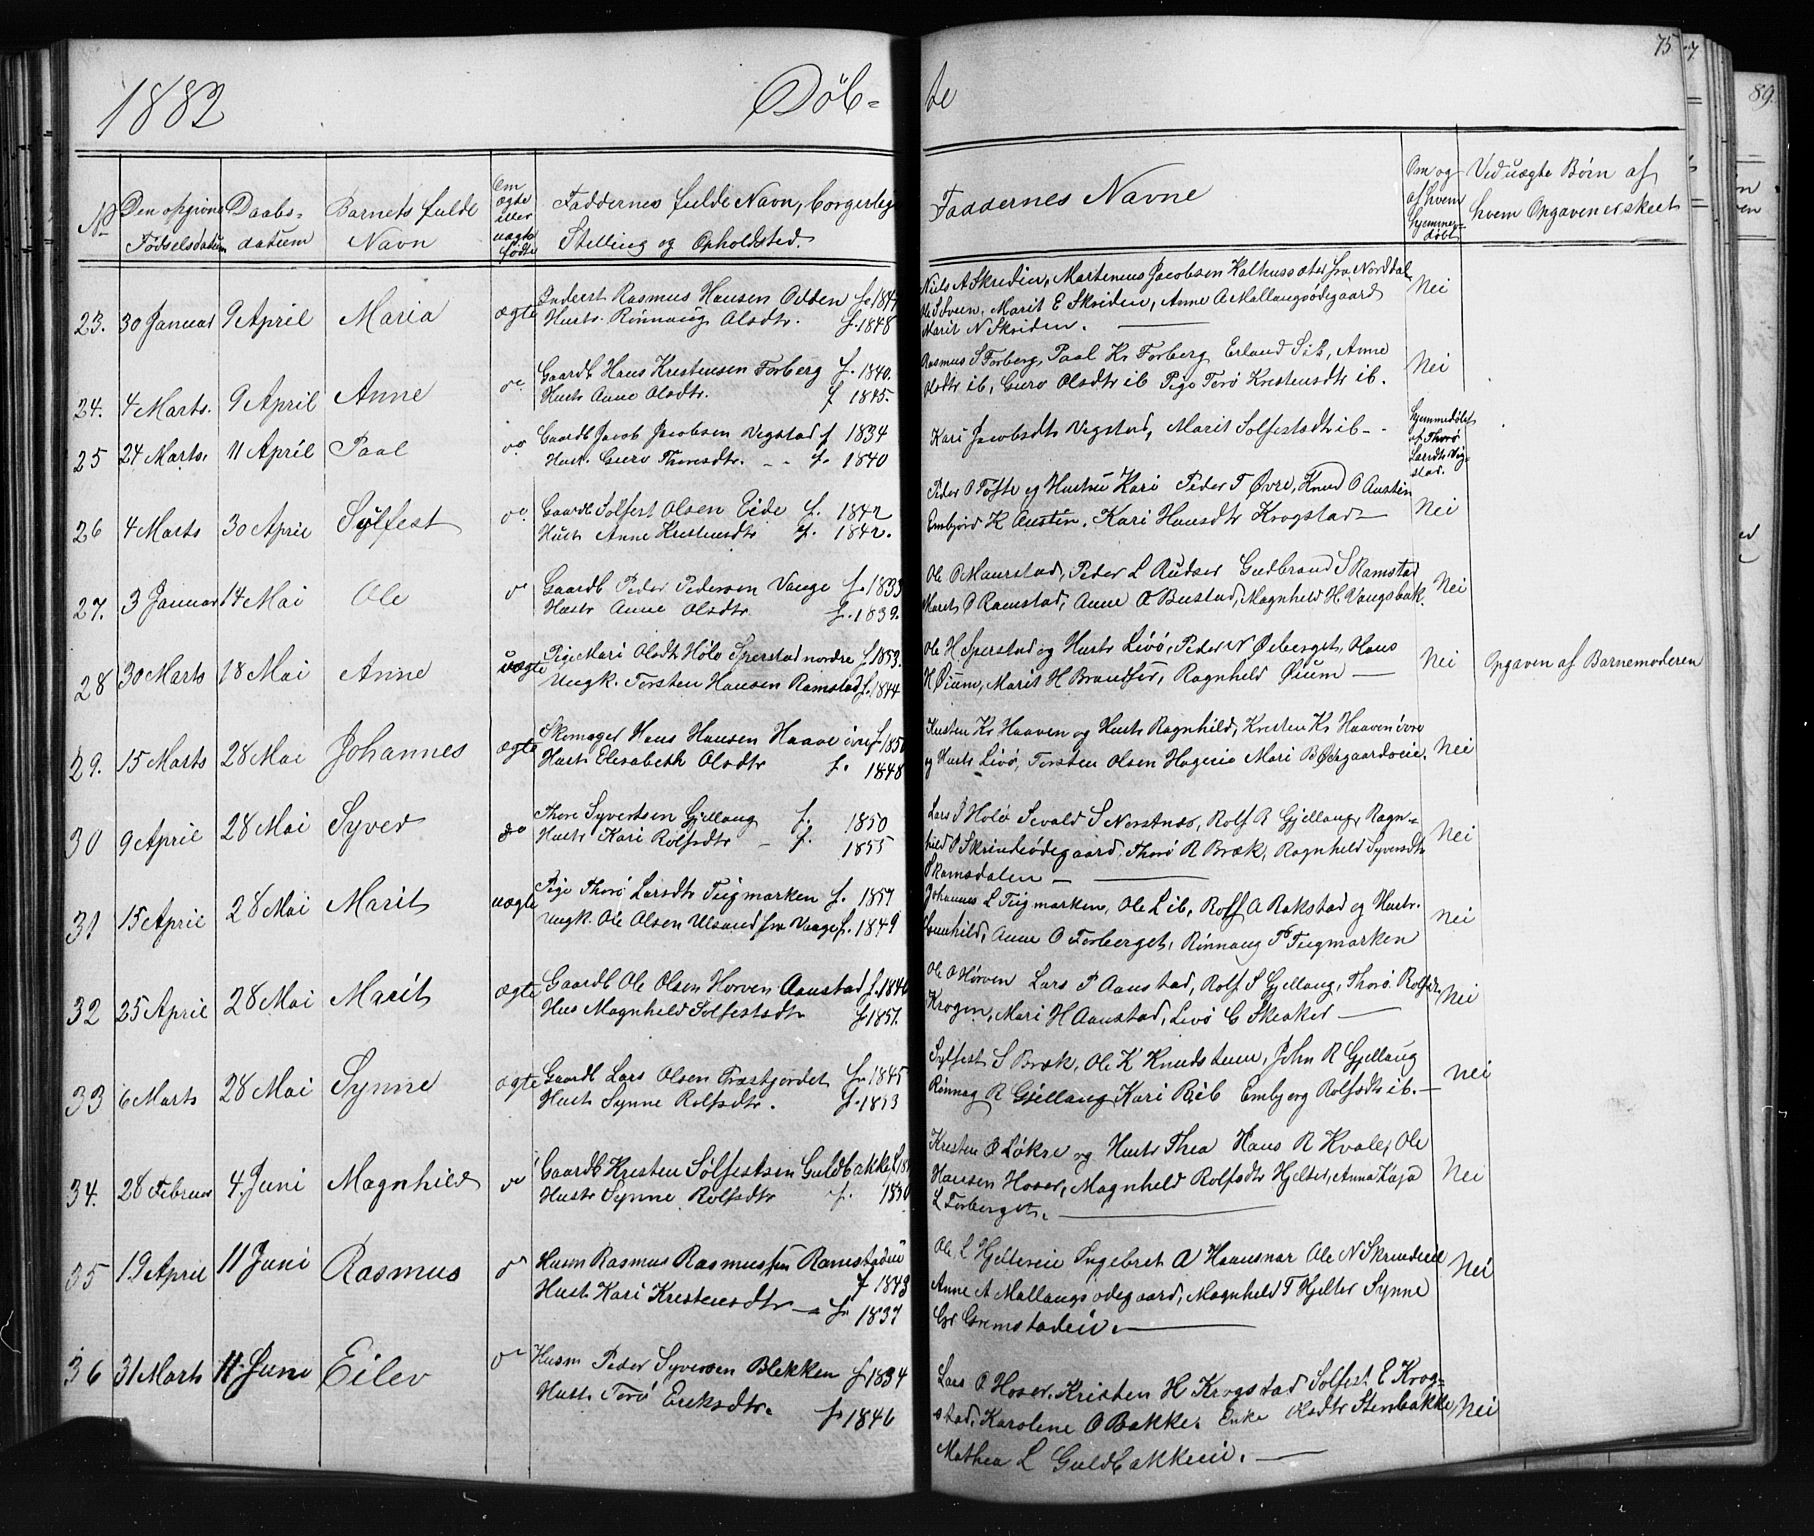 75
89
1882 Døb- te
No
Den opgivne Fødselsdatum
Daabs-datum
Barnets fulde Navn
Om ægte eller uægte fødte
Faddernes fulde Navn, borgerlige Stilling og Opholdsted.
Faddernes Navne
Om og af hvem hjemmedøbt
Ved uægte Børn af hvem Opgaven er skeet
23. 30 Januar 9 April Maria ægte
Inderst Rasmus Hansen Odden f. 184
Hustr. Rönnaug Olsdtr. f. 1848
Niels A Skriden, Martenus Jacobsen Kalhussæter fra Norddal
Marit E Skriden, Anne A Mallangsödegaard
Marit N Skriden. Nei
24. 4 Marts. 9 April Anne do
Gaardb Hans Kristensen Forberg f. 1840.
Hust Anne Olsdtr. f 1845.
Rasmus S Forberg, Paal Kr Forberg Erland Sib, Anne
Olsdtr ib, Guro Olsdtr ib Pige Torö Kristensdtr ib. Nei
25 24 Marts. 11 April Paal do
Gaardb Jacob Jacobsen Vegstad f 1834
Hust. Guro Thoresdtr. - - f. 1840
Kari Jacobsdtr Vegstad, Marit Solfestsdtr ib - .
hjemmedöbt af Thorö Larsdtr Vegstad.
26 4 Marts 30 April Sylfest do
Gaardb Solfest Olsen Eide f. 1842
Hust Anne Kristensdtr f. 1842.
Peder O Tofte og Hustru Kari Peder T Øvre, Knud O Austin
Embjörd K Austin, Kari Hansdtr Krogstad Nei
27. 3 Januar 14 Mai Ole do
Gaardb Peder Pedersen Vange f. 1833
Hustr Anne Olsdtr. f. 1839.
Ole O Maurstad, Peder L Rudser Gudbrand S Ramstad
Marit O Ramstad, Anne O Bustad, Magnheld H Vangsbak. Nei
28 30 Marts 18 Mai Anne uægte
Pige Mari Olsdtr Hölo Sperstad nordre f. 1853.
Ungk. Torsten Hansen Ramstad f. 1844
Ole H Sperstad og Hustr Livö, Peder N Øeberget, Hans
H Øium, Marit H Brandser, Ragnheld Øium Nei
Opgaven af Barnemoderen
29. 15 Marts 28 Mai Johannes ægte
Skomager Hans Hansen Haave övre f. 185
Hust Elisabeth Olsdtr f. 1848
Kristen Kr Haaven og Hustr Ragnhild, Kristen Kr Haaven övre
og Hustr Livö, Torsten Olsen Hageeie Mari B Ødegaardveie. Nei
30 9 April 28 Mai Syver do
Thore Syvertsen Gjellaug f. 1850
Hustr Kari Rolfsdtr - f. 1855
Lars J Hölö Sevald S Norstnes, Rolf R Gjellaug, Ragn-
hild O Skrindeödegaard, Thorö R Bræk, Ragnheld Syversdtr
Skamsdalen Nei
31 15 April 28 Mai Marit uægte
Pige Thorö Larsdtr Tugmarken f. 1857
Ungk. Ole Olsen Ulsand fra Vaage f. 1849
Johannes L Tugmarken, Ole L ib, Rolf A Rakstad og Hustr.
Anne O Forberget, Rönnaug T Tugmarken Nei
32 25 April 28 Mai Marit ægte
Gaardb Ole Olsen Horven Aanstad f. 1840
Hus Magnheld Solfestsdtr f 1857.
Ole O Hörven Lars P Aanstad, Rolf S Gjellaug, Thorö Rolfsdtr
Krogen, Mari H Aanstad, Livö G Skeaker Nei
33 6 Marts 28 Mai Synne ægte
Gaardb Lars Olsen Træstjordet f. 1845
Hust Synne Rolfsdtr. f. 1853
Sylfest S Bræk, Ole K Knudstuen, John R Gjellaug
Rönnag R Gjellaug, Kari R ib Embjörg Rolfsdtr ib. Nei
34. 28 Februar 4 Juni Magnhild do
Gaardb Kresten Solfestsen Guldbakke f. 18
Hustr Synne Rolfsdtr f. 1850
Kresten O Løkre og Hustr Thea Hans R Kvale, Ole
Hansen Hoser, Magnheld Rolfsdtr Hjelter, Anna Kaja
L Forberget. Nei
35 19 April 11 Juni Rasmus do
Husm Rasmus Rasmussen Ramstadeie f 1843
Hust Kari Kristensdtr f. 1837
Ole L Hjeltereie Ingebret A Haansnar Ole N Skrindeeie
Anne A Mallangsodegaard, Magnheld T Hjelter Synne
Gr Gremstadeie. Nei
36 31 Marts 11 Juni Eilev do
Husm Peder Syversen Blekken f 1834
Hust Torö Eriksdtr. f 1846
Lars O Hoser, Kristen H Krogstad Solfest E Krog-
stad, Karoline O Bakke, Enke Olsdtr Stenbakke,
Mathea L Guldbakkeeie. Nei